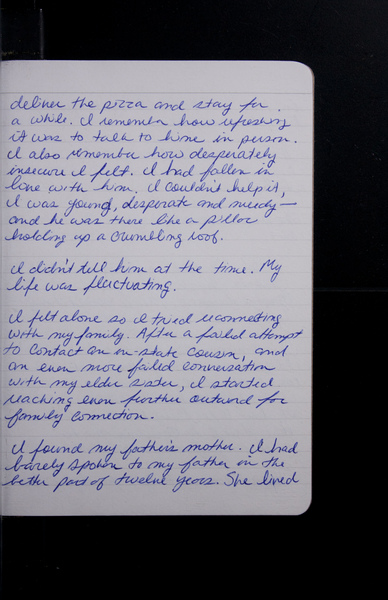 deliver the pizza and stay for
a while. I remember how refreshing
it was to talk to him in person.
I also remember how desperately
insecure I felt. I had fallen in
love with him. I couldn't help it,
I was young, desperate and needy—
and he was there like a pillar
holding up a crumbling roof.
I didn't tell him at the time. My
life was fluctuating.
I felt alone so I tried reconnecting
with my family. After a failed attempt
to contact an in-state cousin, and
an even more failed conversation
with my elder sister, I started
reaching even further outward for
family connection.
I found my father's mother. I had
barely spoken to my father in the
better part of twelve years. She lived